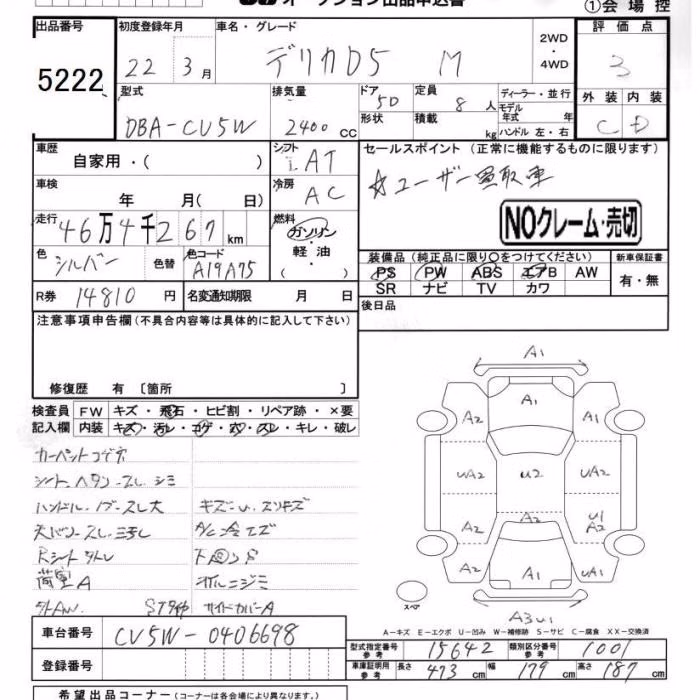 オークション出品申込書 ①会場控
出品番号 5222
初度登録年月 22年 3月
車名・グレード デリカD5 M
2WD・4WD
評価点 3
外装 C 内装 D
型式 DBA-CV5W
排気量 2400 cc
ドア 5D 形状
定員 8人 積載 kg
ディーラー・並行
モデル年式 年
ハンドル 左・右
車歴 自家用・( )
シフト AT
車検 年 月( 日)
冷房 AC
走行 46万4千267km
燃料 ガソリン・軽油・( )
色 シルバー 色替 色コード A19A75
R券 14810円
名変通知期限 月 日
セールスポイント(正常に機能するものに限ります)
☆ユーザー買取車
NOクレーム・売切
装備品(純正品に限り○をつけてください)
PS PW ABS エアB AW
SR ナビ TV カワ
新車保証書 有・無
後日品
注意事項申告欄(不具合内容等は具体的に記入して下さい)
修復歴 有〔箇所 〕
検査員記入欄
FW キズ・飛石・ヒビ割・リペア跡・×要
内装 キズ・汚レ・コゲ・穴・スレ・キレ・破レ
カーペットコゲ穴
シート ヘタリ スレ シミ
ハンドル・ノブ スレ大
キズ u. スリキズ
Rシート
荷室A
オイルニジミ
サイドカバーA
A1
A1
A2 A2
UA2 U2 UA2
A2 A2 U1 A2
A2 A1 A2
A3U1
スペア
A-キズ E-エクボ U-凹み W-補修跡 S-サビ C-腐食 XX-交換済
車台番号 CV5W-0406698
登録番号
型式指定番号 参考 15642 類別区分番号 参考 1001
車庫証明用 参考 長さ 473cm 幅 179cm 高さ 187cm
希望出品コーナー(コーナーは各会場により異なります。)